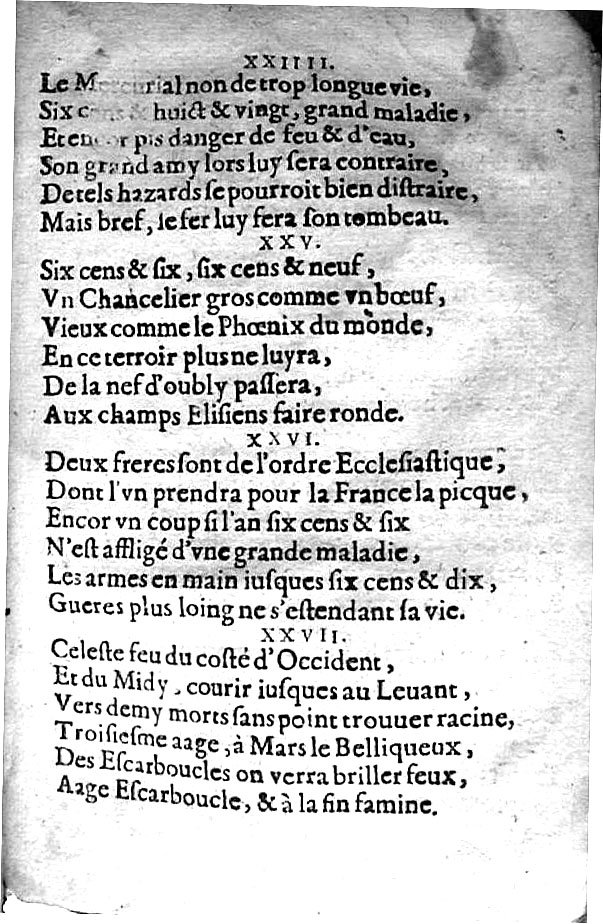 XXIIII.
Le Mercurial non de trop longue vie,
Six cens & huict & vingt, grand maladie,
Et encor pis danger de feu & d'eau,
Son grand amy lors luy ſera contraire,
De tels hazards ſe pourroit bien diſtraire,
Mais bref, le fer luy fera ſon tombeau.
XXV.
Six cens & ſix, ſix cens & neuf,
Vn Chancelier gros comme vn bœuf,
Vieux comme le Phœnix du monde,
En ce terroir plus ne luyra,
De la nef d'oubly paſſera,
Aux champs Eliſiens faire ronde.
XXVI.
Deux freres ſont de l'ordre Eccleſiaſtique,
Dont l'vn prendra pour la France la picque,
Encor vn coup ſi l'an ſix cens & ſix
N'eſt affligé d'vne grande maladie,
Les armes en main iuſques ſix cens & dix,
Gueres plus loing ne s'eſtendant ſa vie.
XXVII.
Celeſte feu du coſté d'Occident,
Et du Midy, courir iuſques au Leuant,
Vers demy morts ſans point trouuer racine,
Troiſieſme aage, à Mars le Belliqueux,
Des Eſcarboucles on verra briller feux,
Aage Eſcarboucle, & à la fin famine.